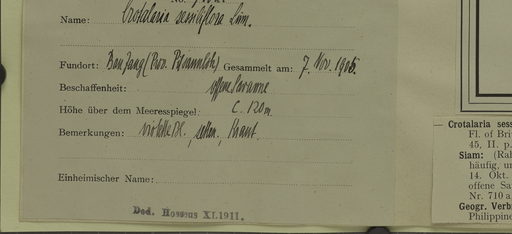 Name: Crotalaria sessiliflora Linn.
Fundort: Ban Jang (Prov. Pitsanulok) Gesammelt am: 7. Nov. 1905.
Beschaffenheit: offene Savanne
Höhe über dem Meeresspiegel: c. 120 m
Bemerkungen: violette Bl., selten, Kraut.
Einheimischer Name:
Ded. Hosseus XI.1911.
Crotalaria sess
Fl. of Bri
45, II. p.
Siam: (Rah
häufig, un
14. Okt.
offene Sa
Nr. 710 a
Geogr. Verb
Philippine